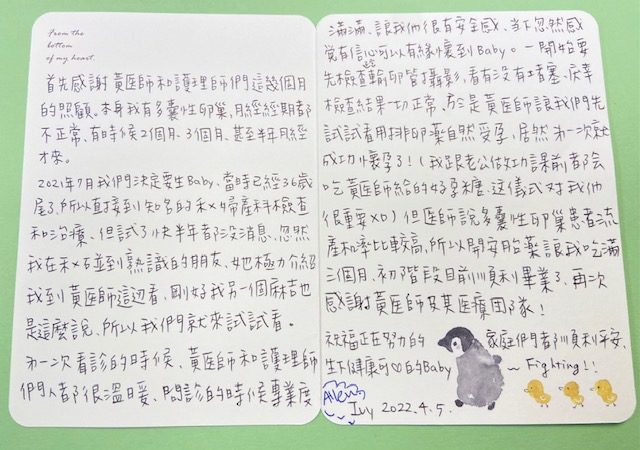 From the
bottom
of my heart.
首先感謝黃醫師和護理師們這幾個月
的照顧。本身我有多囊性卵巢,月經經期都
不正常、有時候2個月、3個月、甚至半年月經
才來。
2021年7月我們決定要生Baby,當時已經36歲
尾了,所以直接到知名的禾×婦產科檢查
和治療、但試了快半年都沒消息、忽然
我在禾×碰到熟識的朋友、她極力介紹
我到黃醫師這邊看,剛好我另一個麻吉也
是這麼說、所以我們就來試試看。
第一次看診的時候、黃醫師和護理師
們人都很溫暖、問診的時候專業度
滿滿、讓我們很有安全感、當下忽然感
覺有信心可以有緣懷到Baby。一開始要
先檢查輸卵管攝影,看有沒有堵塞、
檢查結果一切正常、於是黃醫師讓我們先
試試看用排卵藥自然受孕,居然第一次就
成功懷孕了!(我跟老公做功課前都會
吃黃醫師給的好孕糖、這儀式對我們
很重要XD)但醫師說多囊性卵巢患者流
產和率比較高,所以開安胎藥讓我吃滿
三個月、初階段目前順利畢業了、再次
感謝黃醫師及其醫療團隊!
祝福正在努力的家庭們都順利平安、
生下健康可♡的Baby ~ Fighting!!
Ivy 2022.4.5.